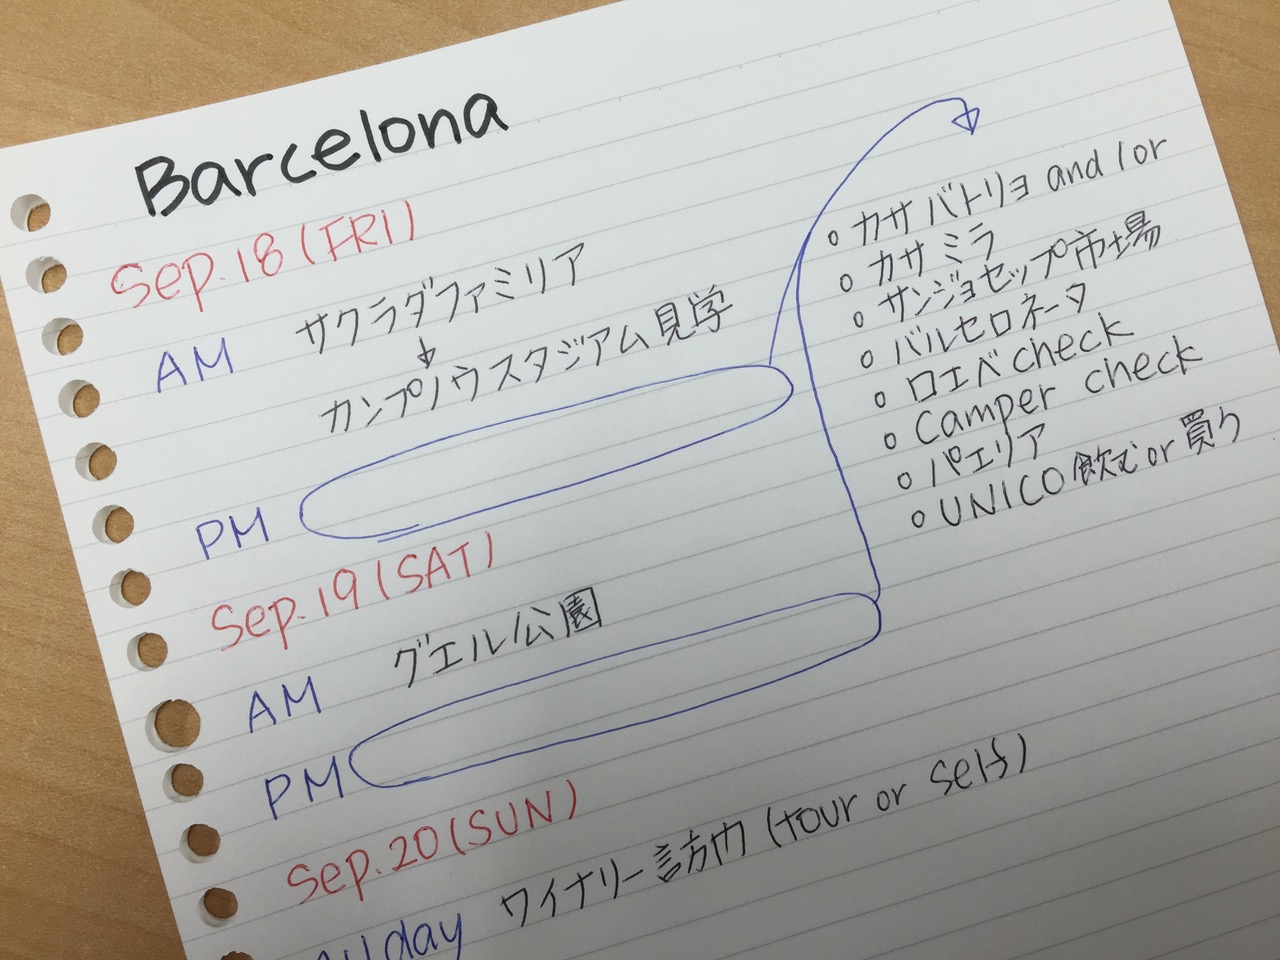 Barcelona
Sep.18(FRI)
AM サクラダファミリア
↓
カンプノウスタジアム見学
PM
Sep.19(SAT)
AM グエル公園
PM
Sep.20(SUN)
All day ワイナリー訪内(tour or self)
○カサバトリョ and/or
○カサミラ
○サンジョセップ市場
○バルセロネータ
○ロエベcheck
○Camper check
○パエリア
○UNICO飲むor買う